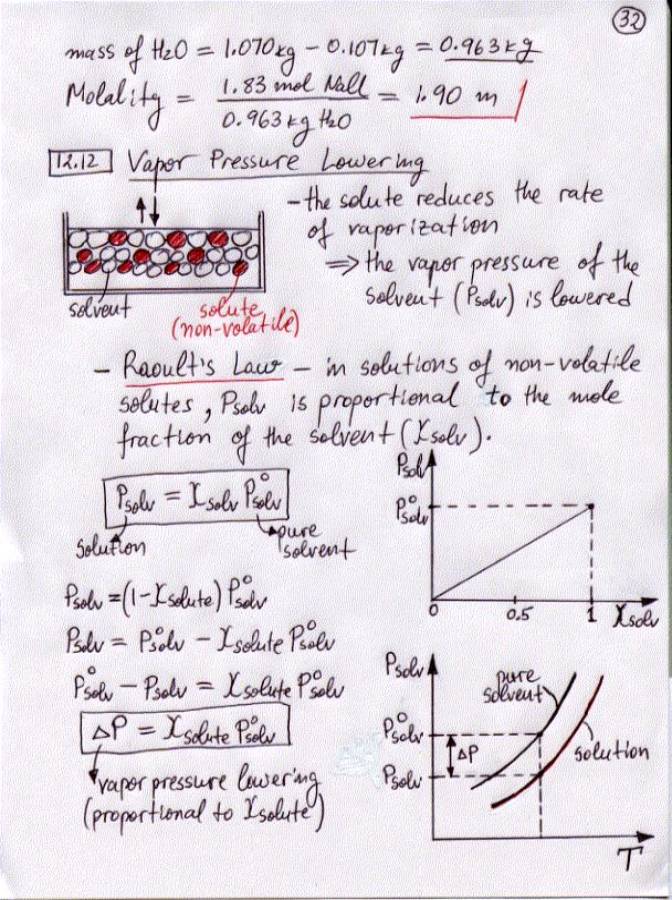 32
mass of H₂O = 1.070 kg - 0.107 kg = 0.963 kg
Molality = 1.83 mol NaCl / 0.963 kg H₂O = 1.90 m
12.12 Vapor Pressure Lowering
- the solute reduces the rate
of vaporization
⇒ the vapor pressure of the
solvent (Psolv) is lowered
solvent
solute
(non-volatile)
- Raoult's Law - in solutions of non-volatile
solutes, Psolv is proportional to the mole
fraction of the solvent (Xsolv).
Psolv = Xsolv P°solv
solution
pure
solvent
Psolv
P°solv
0 0.5 1 Xsolv
Psolv = (1 - Xsolute) P°solv
Psolv = P°solv - Xsolute P°solv
P°solv - Psolv = Xsolute P°solv
ΔP = Xsolute P°solv
vapor pressure lowering
(proportional to Xsolute)
Psolv
pure
solvent
P°solv
ΔP
solution
Psolv
T